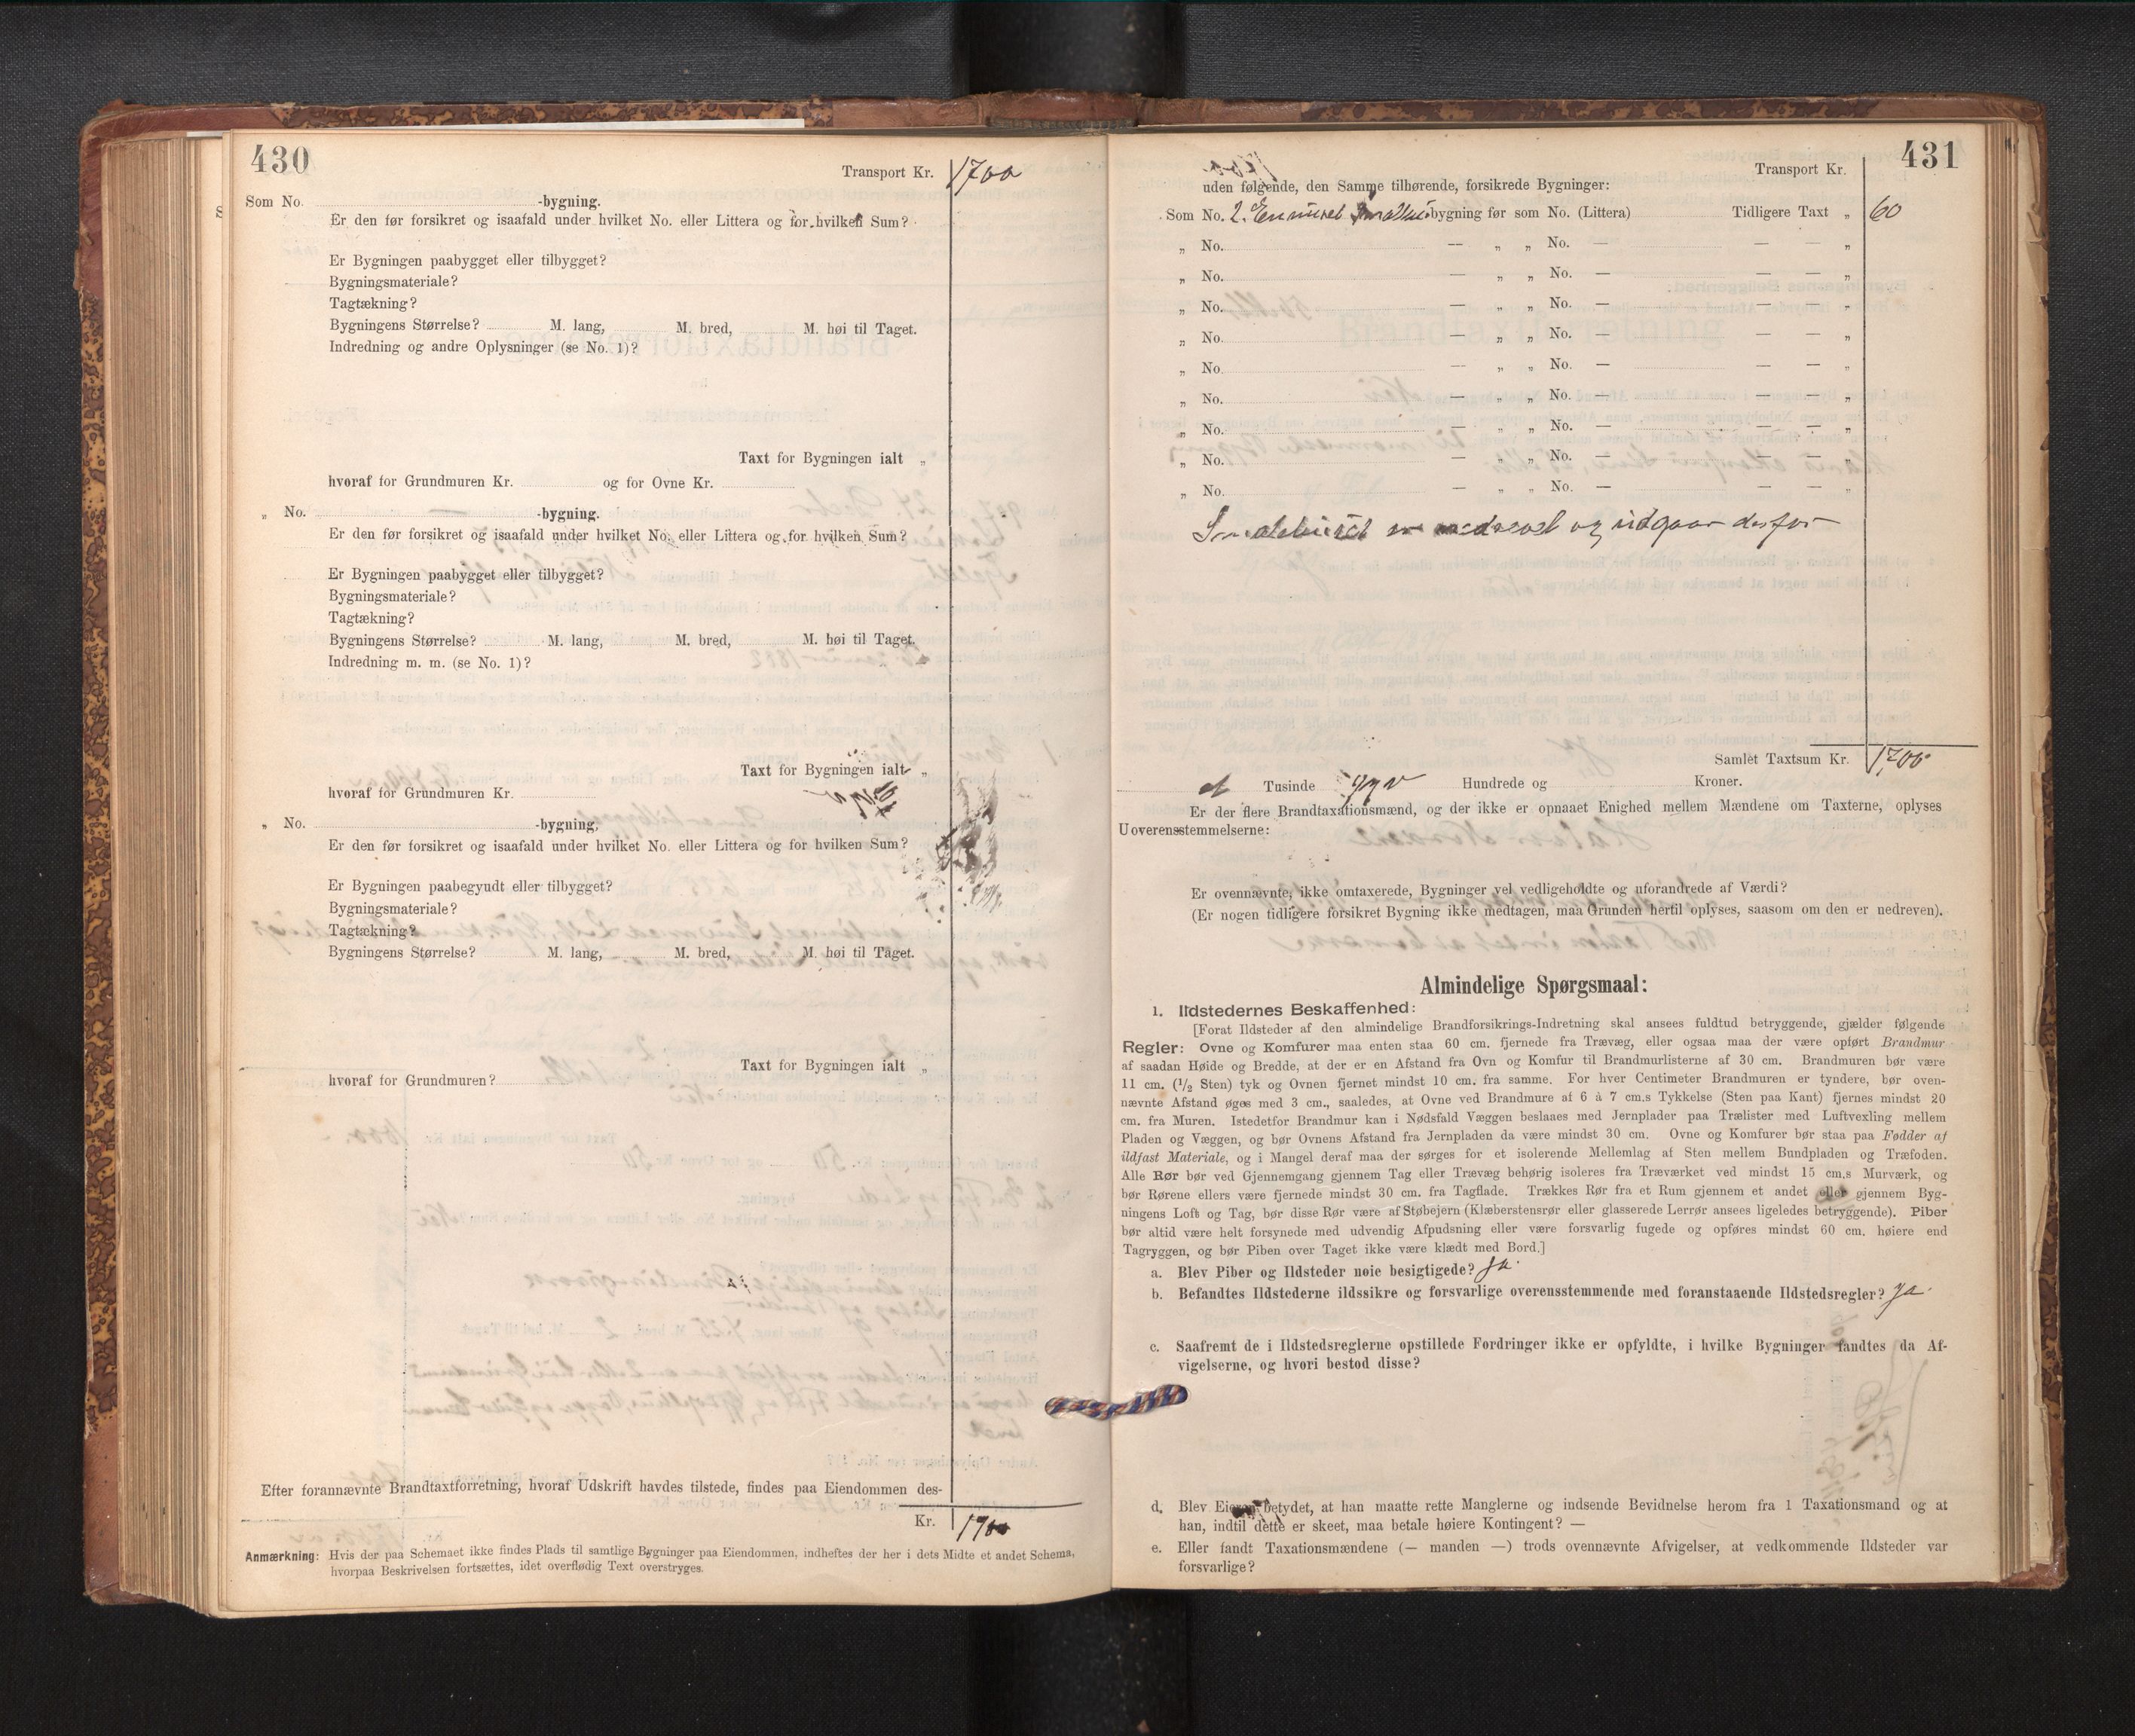 430
Transport Kr. 1700
Som No. -bygning.
Er den før forsikret og isaafald under hvilket No. eller Littera og for hvilken Sum?
Er Bygningen paabygget eller tilbygget?
Bygningsmateriale?
Tagtækning?
Bygningens Størrelse? M. lang, M. bred, M. høi til Taget.
Indredning og andre Oplysninger (se No. 1)?
Taxt for Bygningen ialt „
hvoraf for Grundmuren Kr. og for Ovne Kr.
„ No. -bygning.
Er den før forsikret og isaafald under hvilket No. eller Littera og for hvilken Sum?
Er Bygningen paabygget eller tilbygget?
Bygningsmateriale?
Tagtækning?
Bygningens Størrelse? M. lang, M. bred, M. høi til Taget.
Indredning m. m. (se No. 1)?
Taxt for Bygningen ialt „
hvoraf for Grundmuren Kr.
„ No. -bygning.
Er den før forsikret og isaafald under hvilket No. eller Littera og for hvilken Sum?
Er Bygningen paabegyudt eller tilbygget?
Bygningsmateriale?
Tagtækning?
Bygningens Størrelse? M. lang, M. bred, M. høi til Taget.
Taxt for Bygningen ialt „
hvoraf for Grundmuren?
Efter forannævnte Brandtaxtforretning, hvoraf Udskrift havdes tilstede, findes paa Eiendommen des-
Kr. 1700
Anmærkning: Hvis der paa Schemaet ikke findes Plads til samtlige Bygninger paa Eiendommen, indheftes der her i dets Midte et andet Schema,
hvorpaa Beskrivelsen fortsættes, idet overflødig Text overstryges.
431
Transport Kr.
uden følgende, den Samme tilhørende, forsikrede Bygninger:
Som No. 2. En muret bygning før som No. (Littera) Tidligere Taxt „ 60
„ No. — „ „ No. — — — „
„ No. — „ „ No. — — — „
„ No. — „ „ No. — — — „
„ No. — „ „ No. — — — „
„ No. — „ „ No. — — — „
„ No. — „ „ No. — — — „
„ No. — „ „ No. — — — „
„ No. — „ „ No. — — — „
„ No. — „ „ No. — — — „
Smedehuset er nedrevet og udgaar derfor
Samlet Taxtsum Kr. 1700
et Tusinde syv Hundrede og Kroner.
Er der flere Brandtaxationsmænd, og der ikke er opnaaet Enighed mellem Mændene om Taxterne, oplyses
Uoverensstemmelserne:
Er ovennævnte, ikke omtaxerede, Bygninger vel vedligeholdte og uforandrede af Værdi?
(Er nogen tidligere forsikret Bygning ikke medtagen, maa Grunden hertil oplyses, saasom om den er nedreven).
Almindelige Spørgsmaal:
1. Ildstedernes Beskaffenhed:
[Forat Ildsteder af den almindelige Brandforsikrings-Indretning skal ansees fuldtud betryggende, gjælder følgende
Regler: Ovne og Komfurer maa enten staa 60 cm. fjernede fra Trævæg, eller ogsaa maa der være opført Brandmur
af saadan Høide og Bredde, at der er en Afstand fra Ovn og Komfur til Brandmurlisterne af 30 cm. Brandmuren bør være
11 cm. (1/2 Sten) tyk og Ovnen fjernet mindst 10 cm. fra samme. For hver Centimeter Brandmuren er tyndere, bør oven-
nævnte Afstand øges med 3 cm., saaledes, at Ovne ved Brandmure af 6 à 7 cm.s Tykkelse (Sten paa Kant) fjernes mindst 20
cm. fra Muren. Istedetfor Brandmur kan i Nødsfald Væggen beslaaes med Jernplader paa Trælister med Luftvexling mellem
Pladen og Væggen, og bør Ovnens Afstand fra Jernpladen da være mindst 30 cm. Ovne og Komfurer bør staa paa Fødder af
ildfast Materiale, og i Mangel deraf maa der sørges for et isolerende Mellemlag af Sten mellem Bundpladen og Træfoden.
Alle Rør bør ved Gjennemgang gjennem Tag eller Trævæg behørig isoleres fra Træværket ved mindst 15 cm.s Murværk, og
bør Rørene ellers være fjernede mindst 30 cm. fra Tagflade. Trækkes Rør fra et Rum gjennem et andet eller gjennem Byg-
ningens Loft og Tag, bør disse Rør være af Støbejern (Klæberstensrør eller glasserede Lerrør ansees ligeledes betryggende). Piber
bør altid være helt forsynede med udvendig Afpudsning eller være forsvarlig fugede og opføres mindst 60 cm. høiere end
Tagryggen, og bør Piben over Taget ikke være klædt med Bord.]
a. Blev Piber og Ildsteder nøie besigtigede? Ja.
b. Befandtes Ildstederne ildssikre og forsvarlige overensstemmende med foranstaaende Ildstedsregler? Ja.
c. Saafremt de i Ildstedsreglerne opstillede Fordringer ikke er opfyldte, i hvilke Bygninger fandtes da Af-
vigelserne, og hvori bestod disse?
d. Blev Eieren betydet, at han maatte rette Manglerne og indsende Bevidnelse herom fra 1 Taxationsmand og at
han, indtil dette er skeet, maa betale høiere Kontingent? —
e. Eller fandt Taxationsmændene (— manden —) trods ovennævnte Afvigelser, at vedkommende Ildsteder var
forsvarlige?